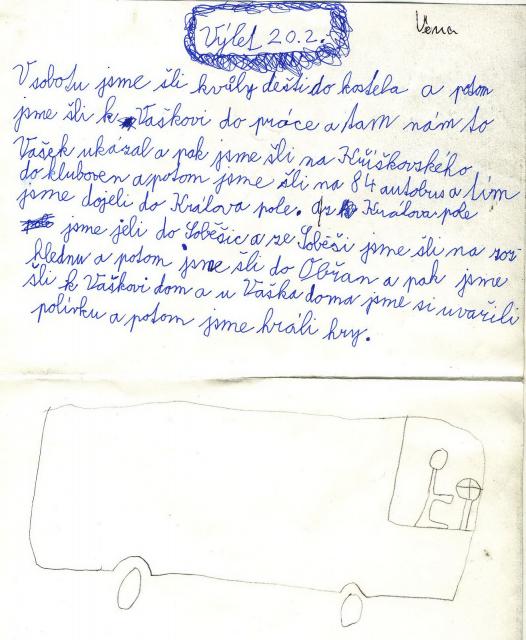 Věna
Výlet 20.2.
V sobotu jsme šli kvůly dešti do kostela a potom
jsme šli k Vaškovi do práce a tam nám to
Vašek ukázal a pak jsme šli na Křížkovského
do kluboven a potom jsme šli na 84 autobus a tím
jsme dojeli do Králova pole. Králova pole
jsme jeli do Soběšic a ze Soběši jsme šli na roz-
hlednu a potom jsme šli do Obřan a pak jsme
šli k Vaškovi dom a u Vaška doma jsme si uvařili
polívku a potom jsme hráli hry.